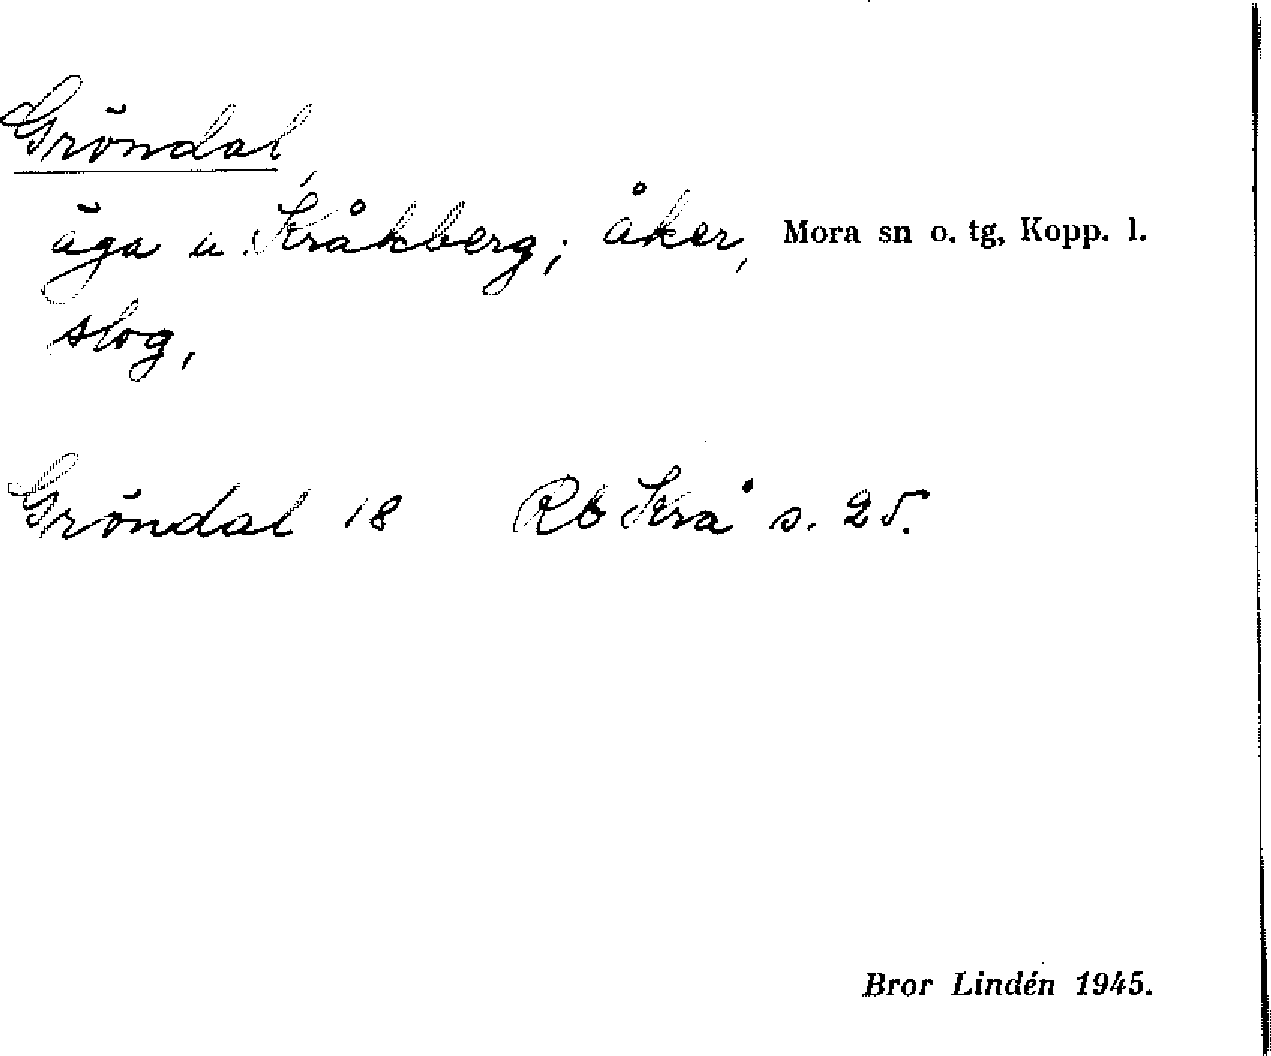 Gröndal,
äga u Kråkberg; åker, Mora sn o. tg, Kopp. l.
slog,
Gröndal 18 Rb Krå s. 25.
Bror Lindén 1945.